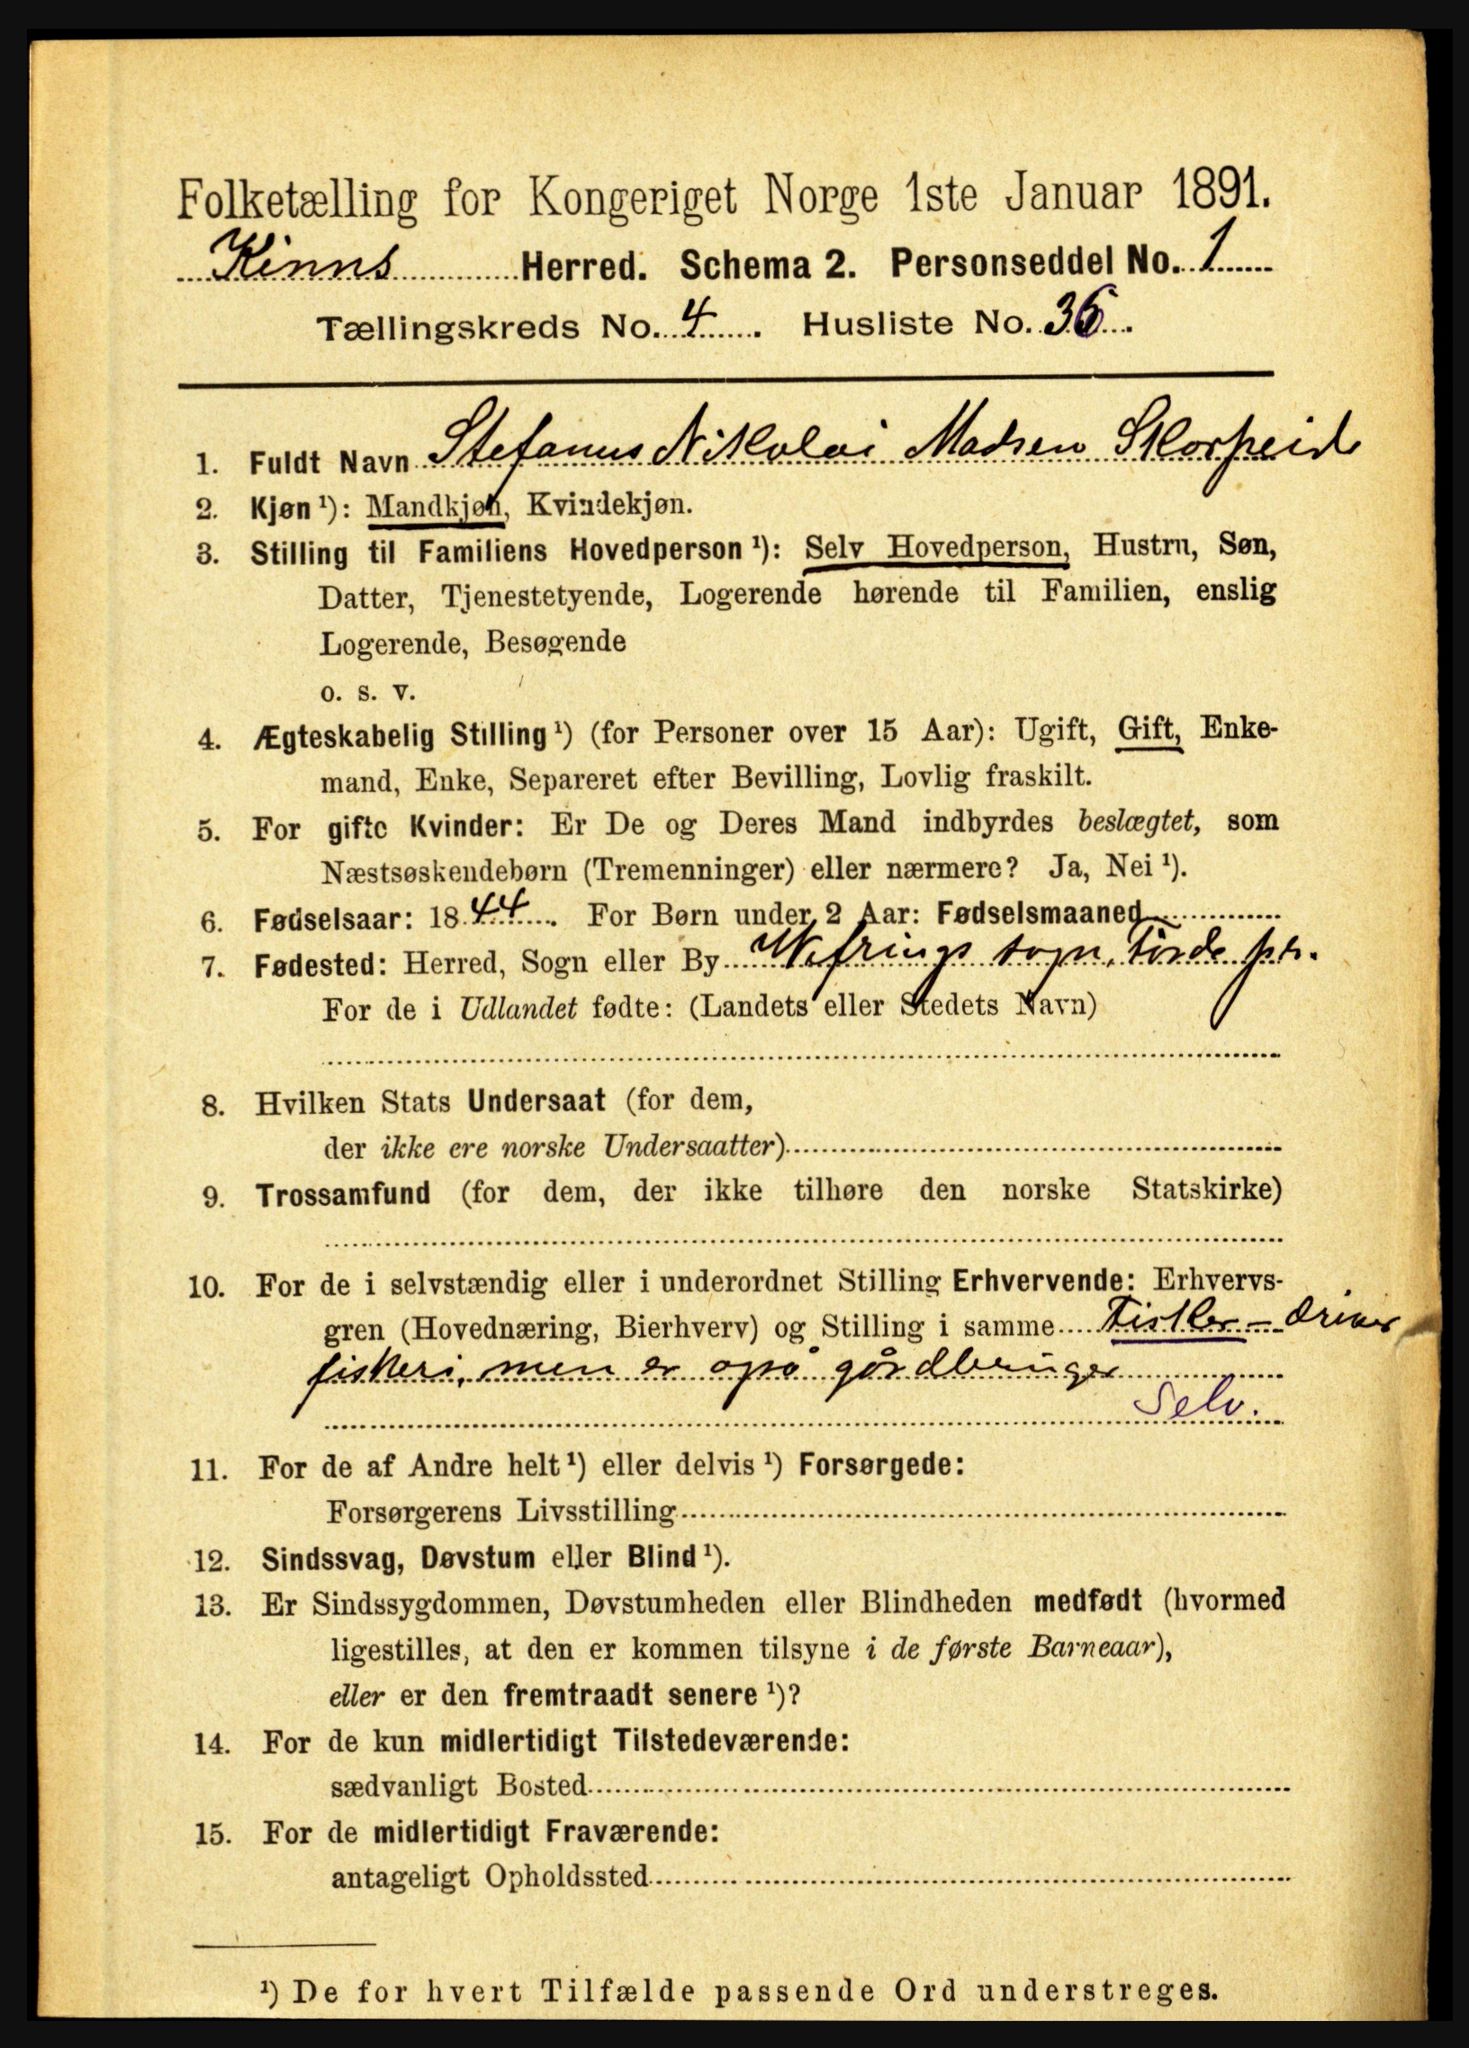 Folketælling for Kongeriget Norge 1ste Januar 1891.
Kinns Herred. Schema 2. Personseddel No. 1
Tællingskreds No. 4. Husliste No. 36.
1. Fuldt Navn Stefanus Nikolai Madsen Skorpeid
2. Kjøn ¹): Mandkjøn, Kvindekjøn.
3. Stilling til Familiens Hovedperson ¹): Selv Hovedperson, Hustru, Søn,
Datter, Tjenestetyende, Logerende hørende til Familien, enslig
Logerende, Besøgende
o. s. v.
4. Ægteskabelig Stilling ¹) (for Personer over 15 Aar): Ugift, Gift, Enke-
mand, Enke, Separeret efter Bevilling, Lovlig fraskilt.
5. For gifte Kvinder: Er De og Deres Mand indbyrdes beslægtet, som
Næstsøskendebørn (Tremenninger) eller nærmere? Ja, Nei ¹).
6. Fødselsaar: 1844. For Børn under 2 Aar: Fødselsmaaned
7. Fødested: Herred, Sogn eller By Wefrings sogn, Førde p
For de i Udlandet fødte: (Landets eller Stedets Navn)
8. Hvilken Stats Undersaat (for dem,
der ikke ere norske Undersaatter)
9. Trossamfund (for dem, der ikke tilhøre den norske Statskirke)
10. For de i selvstændig eller i underordnet Stilling Erhvervende: Erhvervs-
gren (Hovednæring, Bierhverv) og Stilling i samme Fisker - driver
fiskeri, men er også gårdbruger
Selv.
11. For de af Andre helt ¹) eller delvis ¹) Forsørgede:
Forsørgerens Livsstilling
12. Sindssvag, Døvstum eller Blind ¹).
13. Er Sindssygdommen, Døvstumheden eller Blindheden medfødt (hvormed
ligestilles, at den er kommen tilsyne i de første Barneaar),
eller er den fremtraadt senere ¹)?
14. For de kun midlertidigt Tilstedeværende:
sædvanligt Bosted
15. For de midlertidigt Fraværende:
antageligt Opholdssted
¹) De for hvert Tilfælde passende Ord understreges.